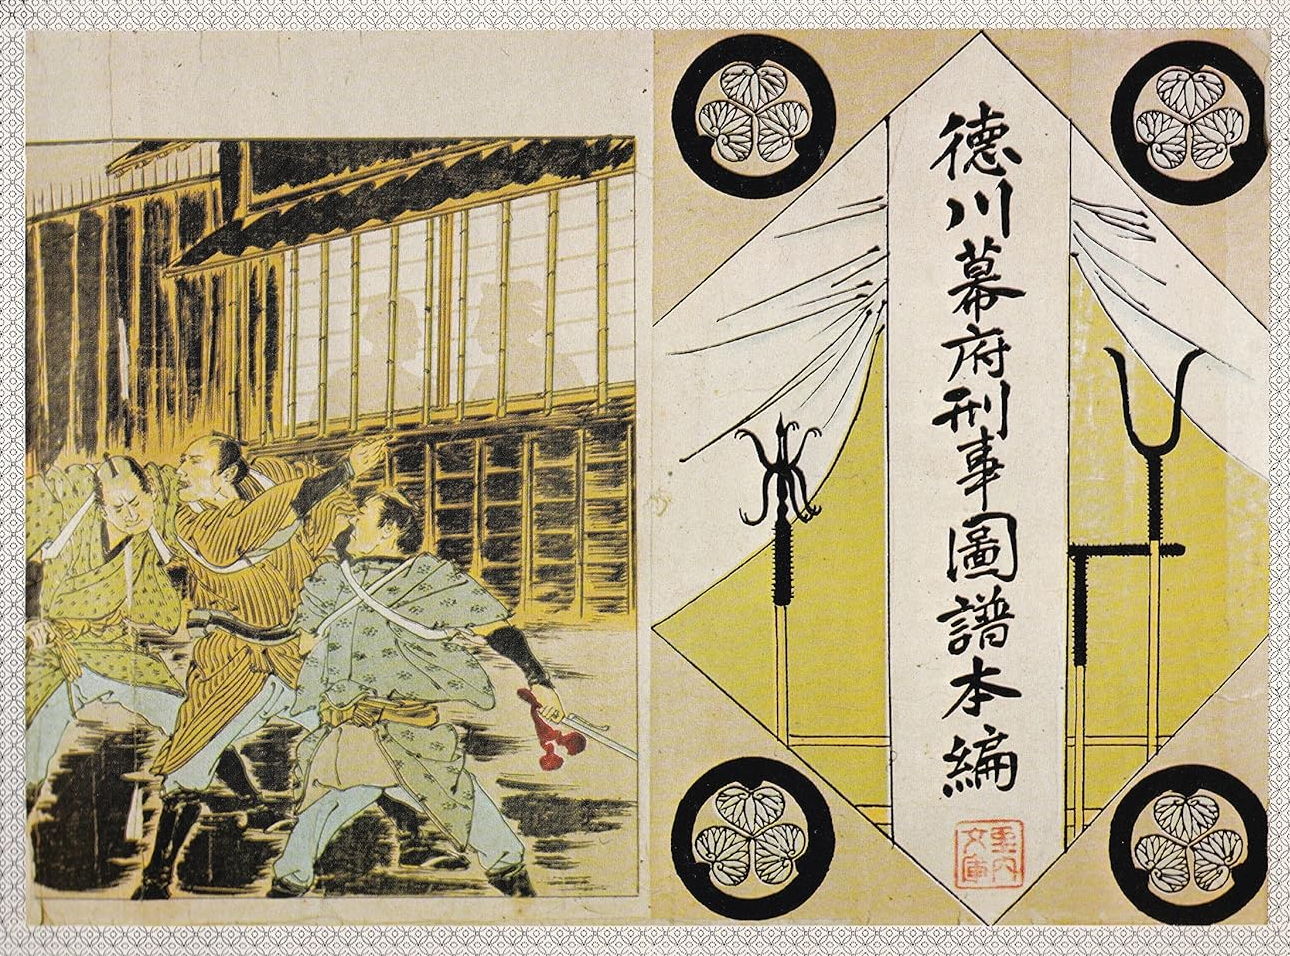 徳川幕府刑事圖譜本編